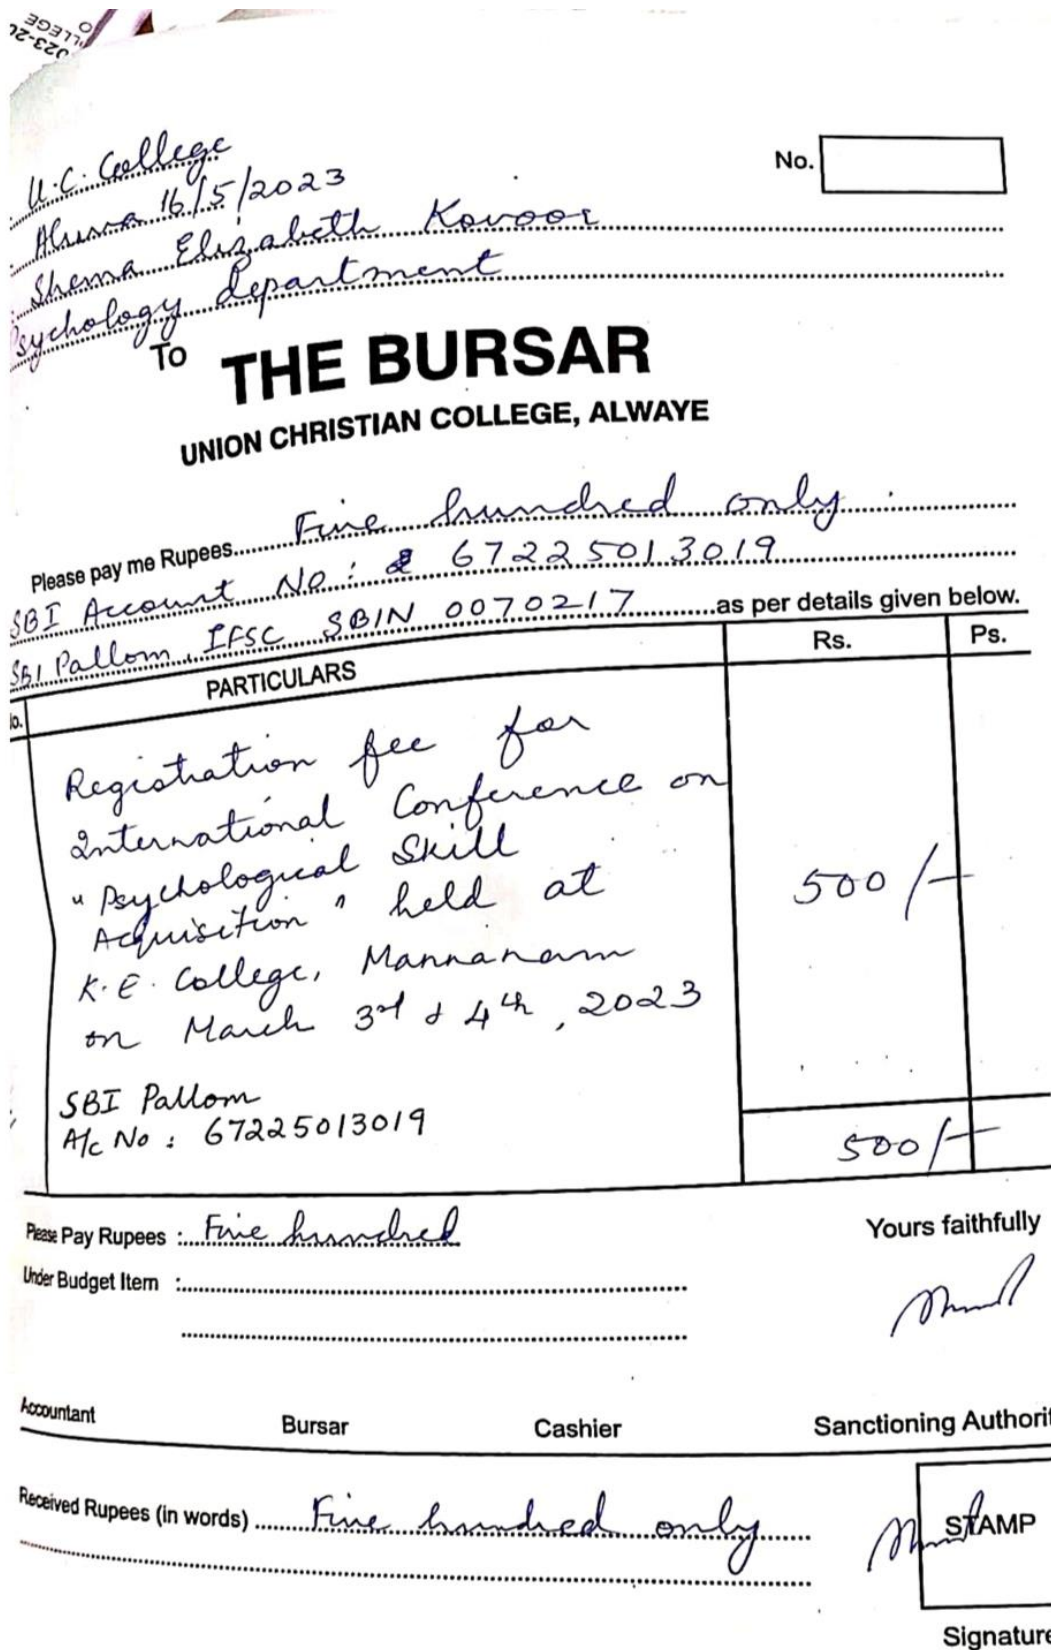 No.
U.C. College
Aluva 16/5/2023
Shema Elizabeth Kovoor
Psychology department
To
THE BURSAR
UNION CHRISTIAN COLLEGE, ALWAYE
Please pay me Rupees Five hundred only
SBI Account No: 67225013019
SBI Pallom, IFSC SBIN 0070217 as per details given below.
PARTICULARS Rs. Ps.
Registration fee for
International Conference on
"Psychological Skill
Acquisition" held at
K.E. College, Mannanam
on March 3rd & 4th, 2023
500/-
SBI Pallom
A/c No : 67225013019
500/-
Please Pay Rupees : Five hundred
Yours faithfully
Under Budget Item :
Accountant Bursar Cashier Sanctioning Authorit
Received Rupees (in words) Five hundred only
STAMP
Signature